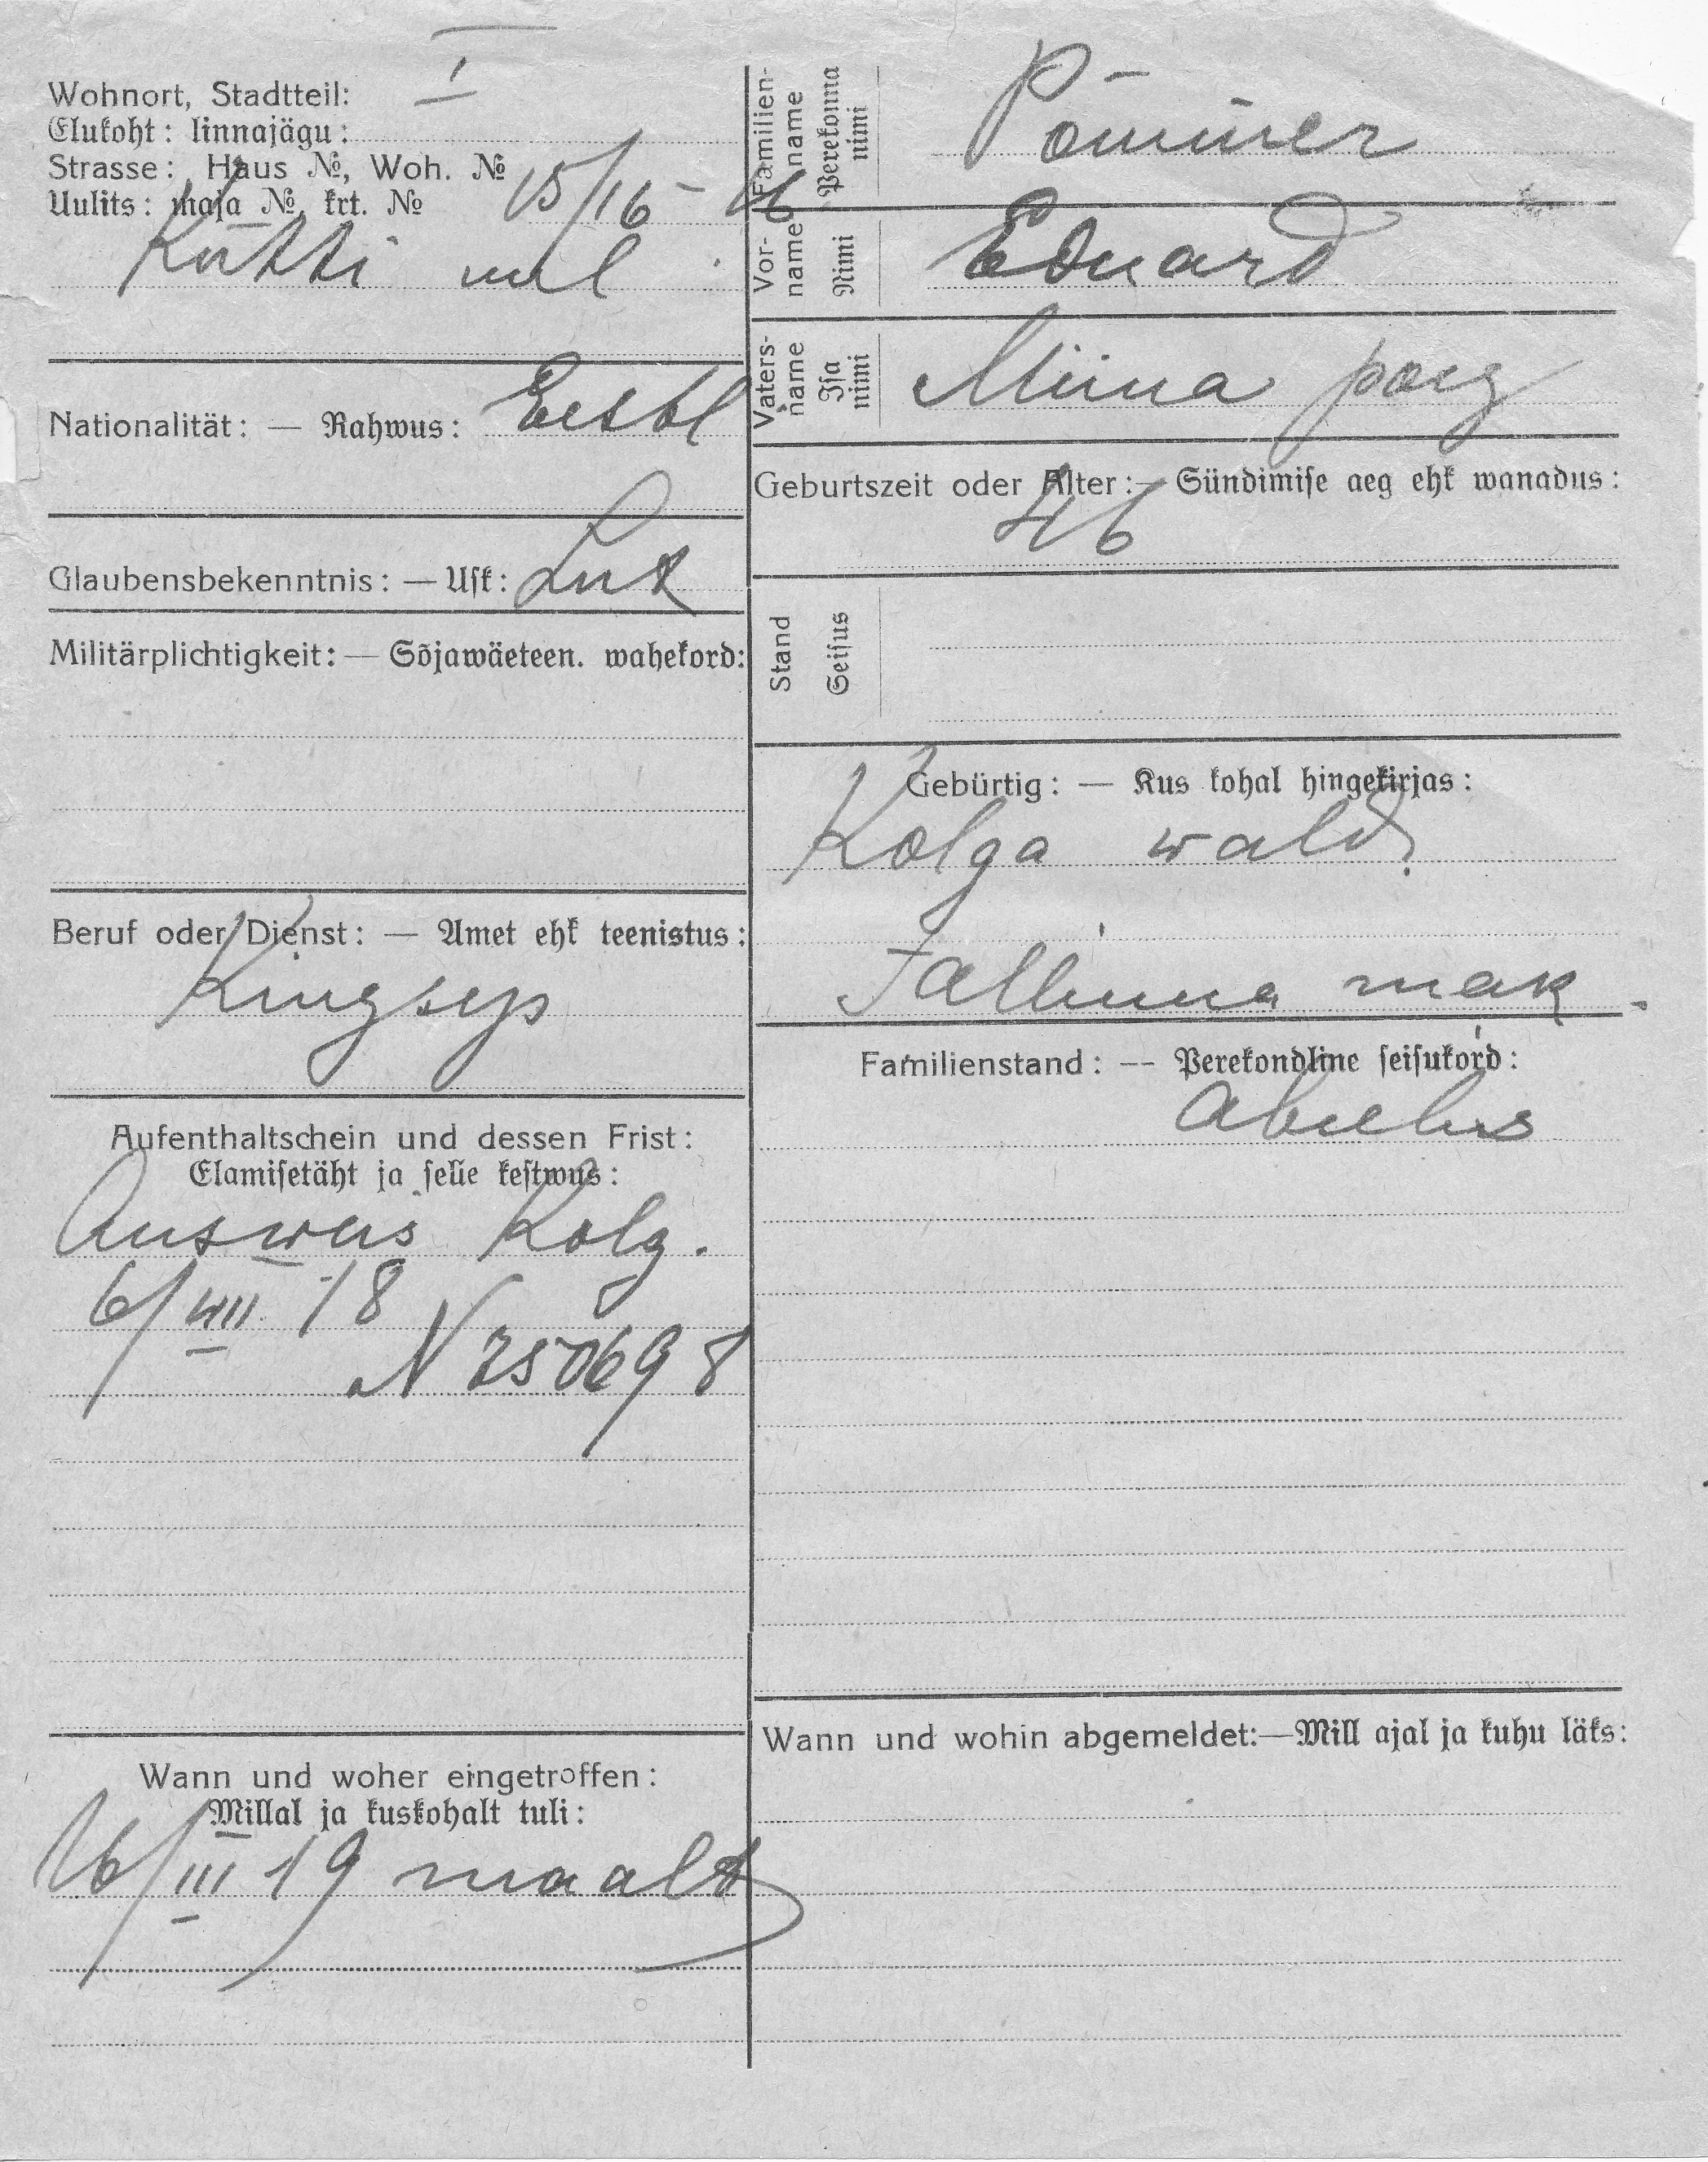 I
Wohnort, Stadtteil:
Elukoht: linnajägu:
Strasse: Haus №, Woh. №
Uulits: maja №, krt. № 15/16 - 16
Kütti uul.
Nationalität: — Rahwus: Eestl
Glaubensbekenntnis: — Usk: Lut
Militärplichtigkeit: — Sõjawäeteen. wahekord:
Beruf oder Dienst: — Amet ehk teenistus:
Kingsep
Aufenthaltschein und dessen Frist:
Elamisetäht ja selle kestwus:
Ausweis Kolg.
6/VIII 18
N 250698
Wann und woher eingetroffen:
Millal ja kuskohalt tuli:
16/III 19 maalt
Familien-name Perekonna nimi
Vor-name Nimi Eduard
Vaters-name Isa nimi Miina poeg
Geburtszeit oder Alter: — Sündimise aeg ehk wanadus:
46
Stand Seisus
Gebürtig: — Kus kohal hingekirjas:
Kolga wald.
Tallinna mak.
Familienstand: — Perekondline seisukord:
abielus
Wann und wohin abgemeldet:—Mill ajal ja kuhu läks: